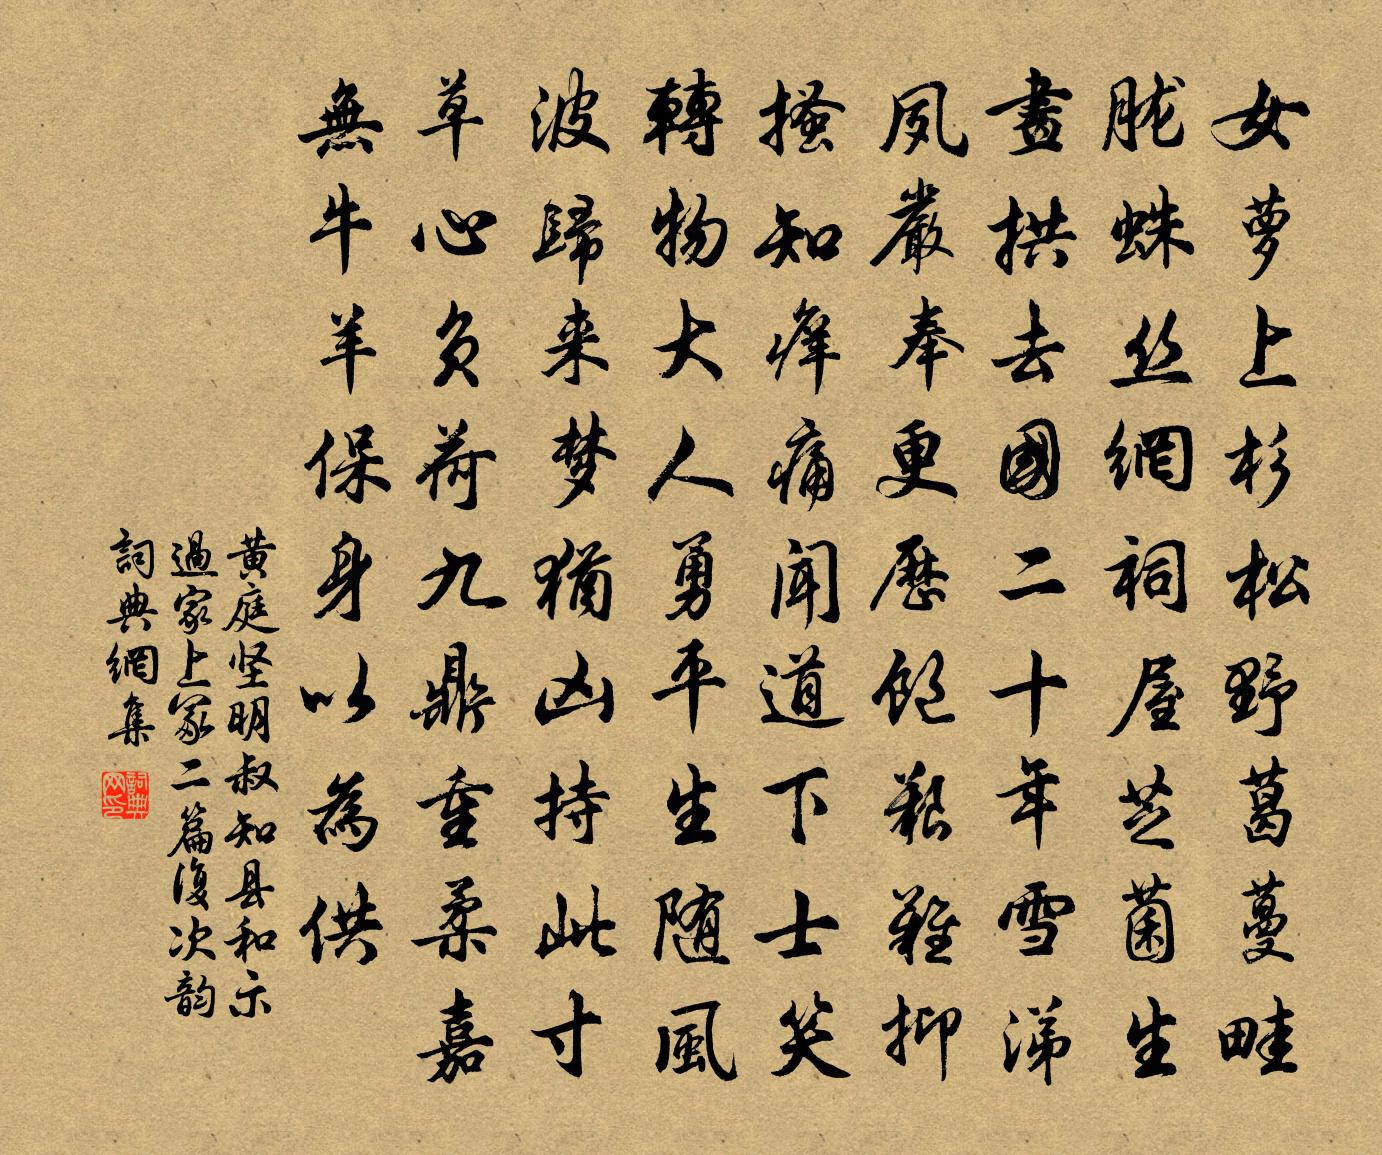 女萝上杉松野葛蔓畦
胧蛛丝網祠屋芝菌生
畫拱去國二十年雪涕
夙嚴奉更歷飽艱難抑
搔知痒痛聞道下士笑
轉物大人勇平生随風
波歸来梦猶凶持此寸
草心負荷九鼎重柔嘉
無牛羊保身以為供
黄庭坚明叔知县和示
過家上冢二篇復次韵
詞典網集
詞典
网印